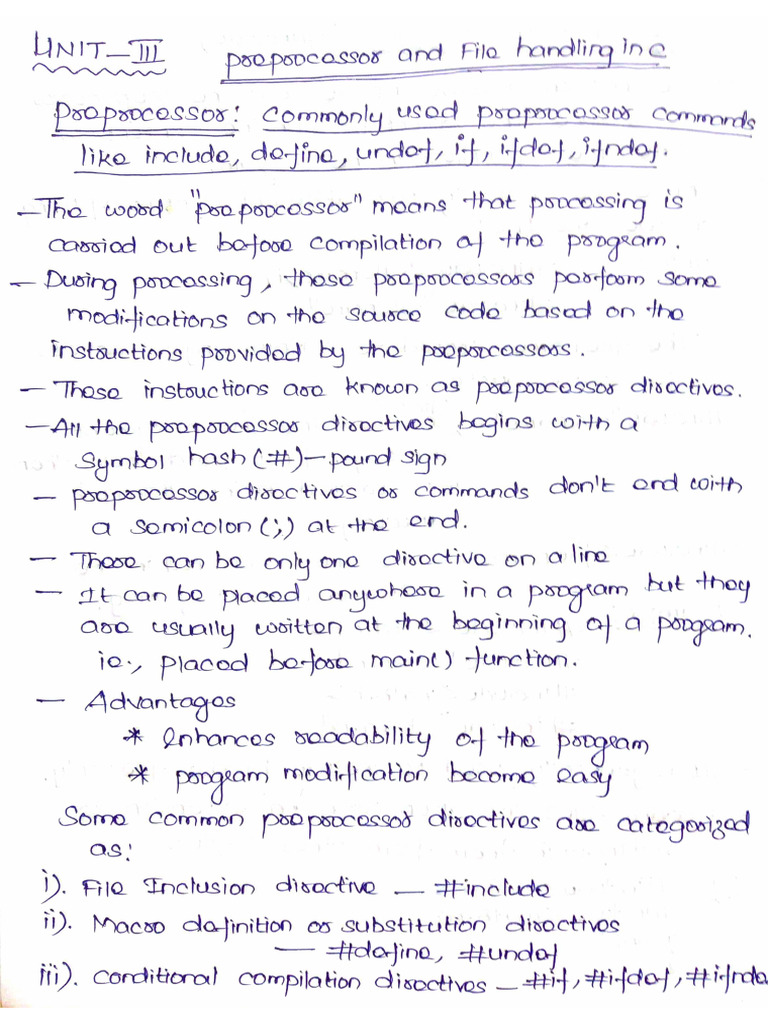 UNIT-III preprocessor and File handling in C
Preprocessor: commonly used preprocessor commands
like include, define, undef, if, ifdef, ifndef.
- The word "preprocessor" means that processing is
carried out before compilation of the program.
- During processing, these preprocessors perform some
modifications on the source code based on the
instructions provided by the preprocessors.
- These instructions are known as preprocessor directives.
- All the preprocessor directives begins with a
symbol hash (#) - pound sign
- preprocessor directives or commands don't end with
a semicolon (;) at the end.
- There can be only one directive on a line
- It can be placed anywhere in a program but they
are usually written at the beginning of a program.
ie., placed before main() function.
- Advantages
* enhances readability of the program
* program modification become easy
Some common preprocessor directives are categorized
as:
i). File Inclusion directive - #include
ii). Macro definition or substitution directives
- #define, #undef
iii). conditional compilation directives - #if, #ifdef, #ifnde